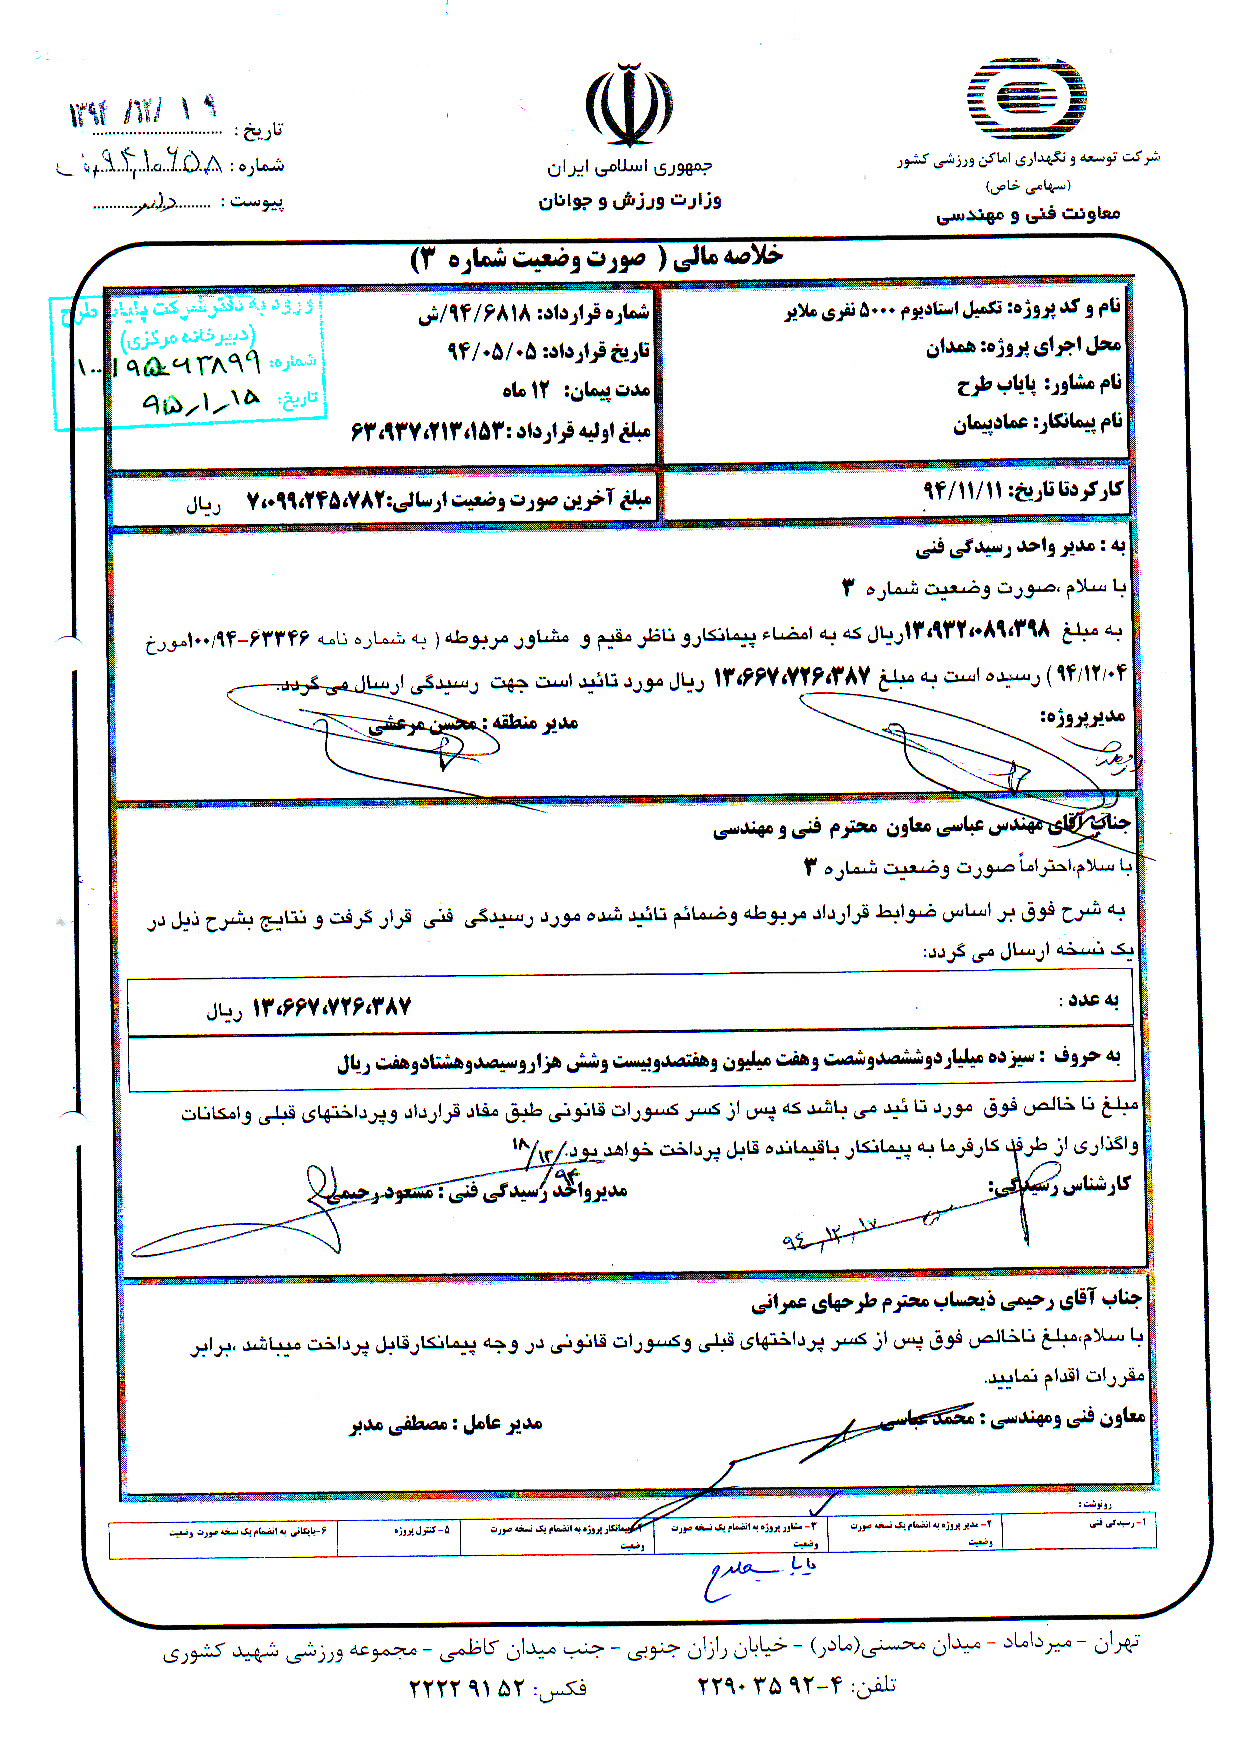 شرکت توسعه و نگهداری اماکن ورزشی کشور
(سهامی خاص)
معاونت فنی و مهندسی
جمهوری اسلامی ایران
وزارت ورزش و جوانان
تاریخ : ۱۳۹۴/۱۲/۱۹
شماره :
پیوست :
خلاصه مالی ( صورت وضعیت شماره ۳)
نام و کد پروژه: تکمیل استادیوم ۵۰۰۰ نفری ملایر
محل اجرای پروژه: همدان
نام مشاور: پایاب طرح
نام پیمانکار: عمادپیمان
شماره قرارداد: ۹۴/۶۸۱۸/ش
تاریخ قرارداد: ۹۴/۰۵/۰۵
مدت پیمان: ۱۲ ماه
مبلغ اولیه قرارداد :۶۳،۹۳۷،۲۱۳،۱۵۳
ورود به دفتر شرکت پایاب طرح
(دبیرخانه مرکزی)
شماره:
تاریخ: ۹۵/۱/۱۵
کارکردتا تاریخ: ۹۴/۱۱/۱۱
مبلغ آخرین صورت وضعیت ارسالی:۷،۰۹۹،۲۴۵،۷۸۲ ریال
به : مدیر واحد رسیدگی فنی
با سلام ،صورت وضعیت شماره ۳
به مبلغ ۱۳،۹۳۲،۰۸۹،۳۹۸ریال که به امضاء پیمانکارو ناظر مقیم و مشاور مربوطه ( به شماره نامه ۶۳۳۴۶-۱۰۰/۹۴مورخ
۹۴/۱۲/۰۴ ) رسیده است به مبلغ ۱۳،۶۶۷،۷۲۶،۳۸۷ ریال مورد تائید است جهت رسیدگی ارسال می گردد.
مدیرپروژه:
مدیر منطقه : محسن مرعشی
جناب آقای مهندس عباسی معاون محترم فنی و مهندسی
با سلام،احتراماً صورت وضعیت شماره ۳
به شرح فوق بر اساس ضوابط قرارداد مربوطه وضمائم تائید شده مورد رسیدگی فنی قرار گرفت و نتایج بشرح ذیل در
یک نسخه ارسال می گردد:
به عدد : ۱۳،۶۶۷،۷۲۶،۳۸۷ ریال
به حروف : سیزده میلیاردوششصدوشصت وهفت میلیون وهفتصدوبیست وشش هزاروسیصدوهشتادوهفت ریال
مبلغ نا خالص فوق مورد تا ئید می باشد که پس از کسر کسورات قانونی طبق مفاد قرارداد وپرداختهای قبلی وامکانات
واگذاری از طرف کارفرما به پیمانکار باقیمانده قابل پرداخت خواهد بود.
۹۴/۱۲/۱۸
کارشناس رسیدگی:
۹۴/۱۲/۱۷
مدیرواحد رسیدگی فنی : مسعود رحیمی
جناب آقای رحیمی ذیحساب محترم طرحهای عمرانی
با سلام،مبلغ ناخالص فوق پس از کسر پرداختهای قبلی وکسورات قانونی در وجه پیمانکارقابل پرداخت میباشد ،برابر
مقررات اقدام نمایید.
معاون فنی ومهندسی : محمد عباسی
مدیر عامل : مصطفی مدبر
رونوشت :
۱- رسیدگی فنی
۲- مدیر پروژه به انضمام یک نسخه صورت وضعیت
۳- مشاور پروژه به انضمام یک نسخه صورت وضعیت
۴- پیمانکار پروژه به انضمام یک نسخه صورت وضعیت
۵- کنترل پروژه
۶-بایگانی به انضمام یک نسخه صورت وضعیت
تهران - میرداماد - میدان محسنی(مادر) - خیابان رازان جنوبی - جنب میدان کاظمی - مجموعه ورزشی شهید کشوری
تلفن: ۴-۹۲ ۳۵ ۲۲۹۰
فکس: ۵۲ ۹۱ ۲۲۲۲